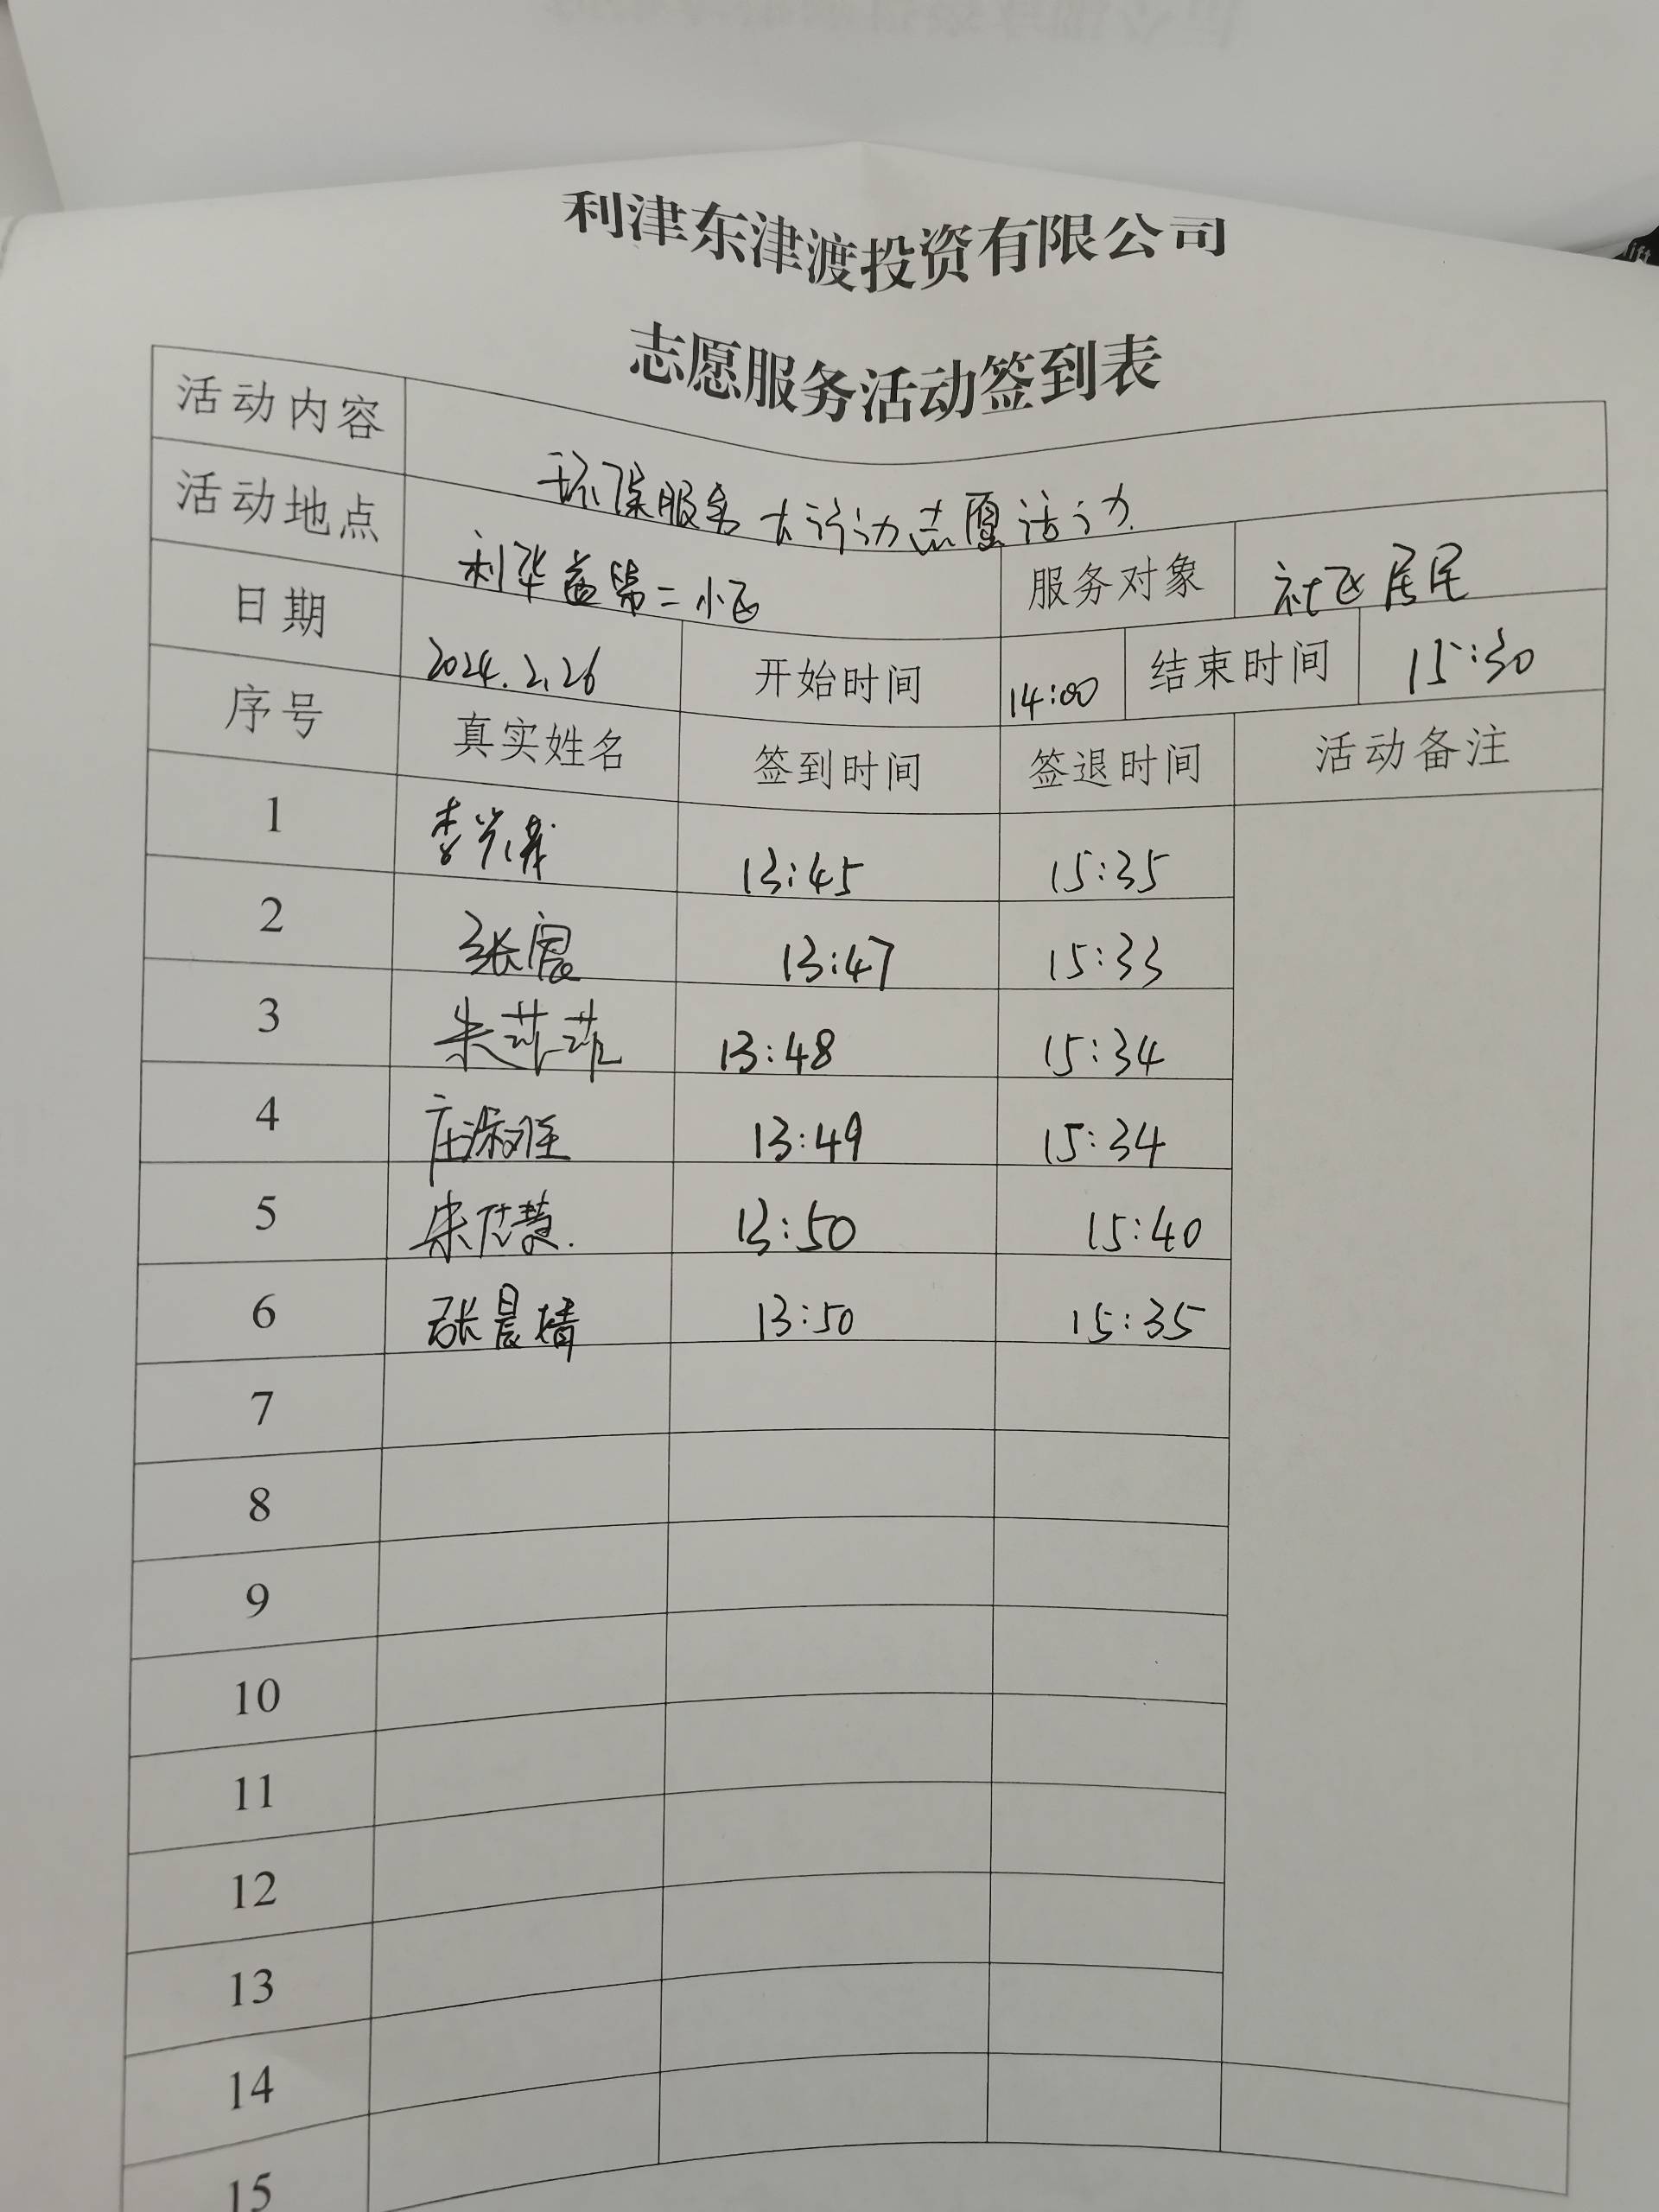 利津东津渡投资有限公司
志愿服务活动签到表
活动内容 环保服务大行动志愿活动
活动地点 利华益第二小区 服务对象 社区居民
日期 2024.2.26 开始时间 14:00 结束时间 15:30
序号 真实姓名 签到时间 签退时间 活动备注
1 13:45 15:35
2 张宸 13:47 15:33
3 朱菲菲 13:48 15:34
4 13:49 15:34
5 13:50 15:40
6 张晨婧 13:50 15:35
7
8
9
10
11
12
13
14
15